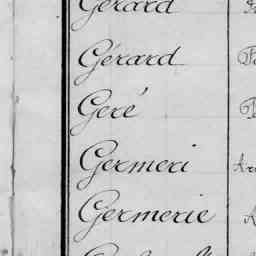 Gérard
Gérard
Geré
Germeri
Germerie